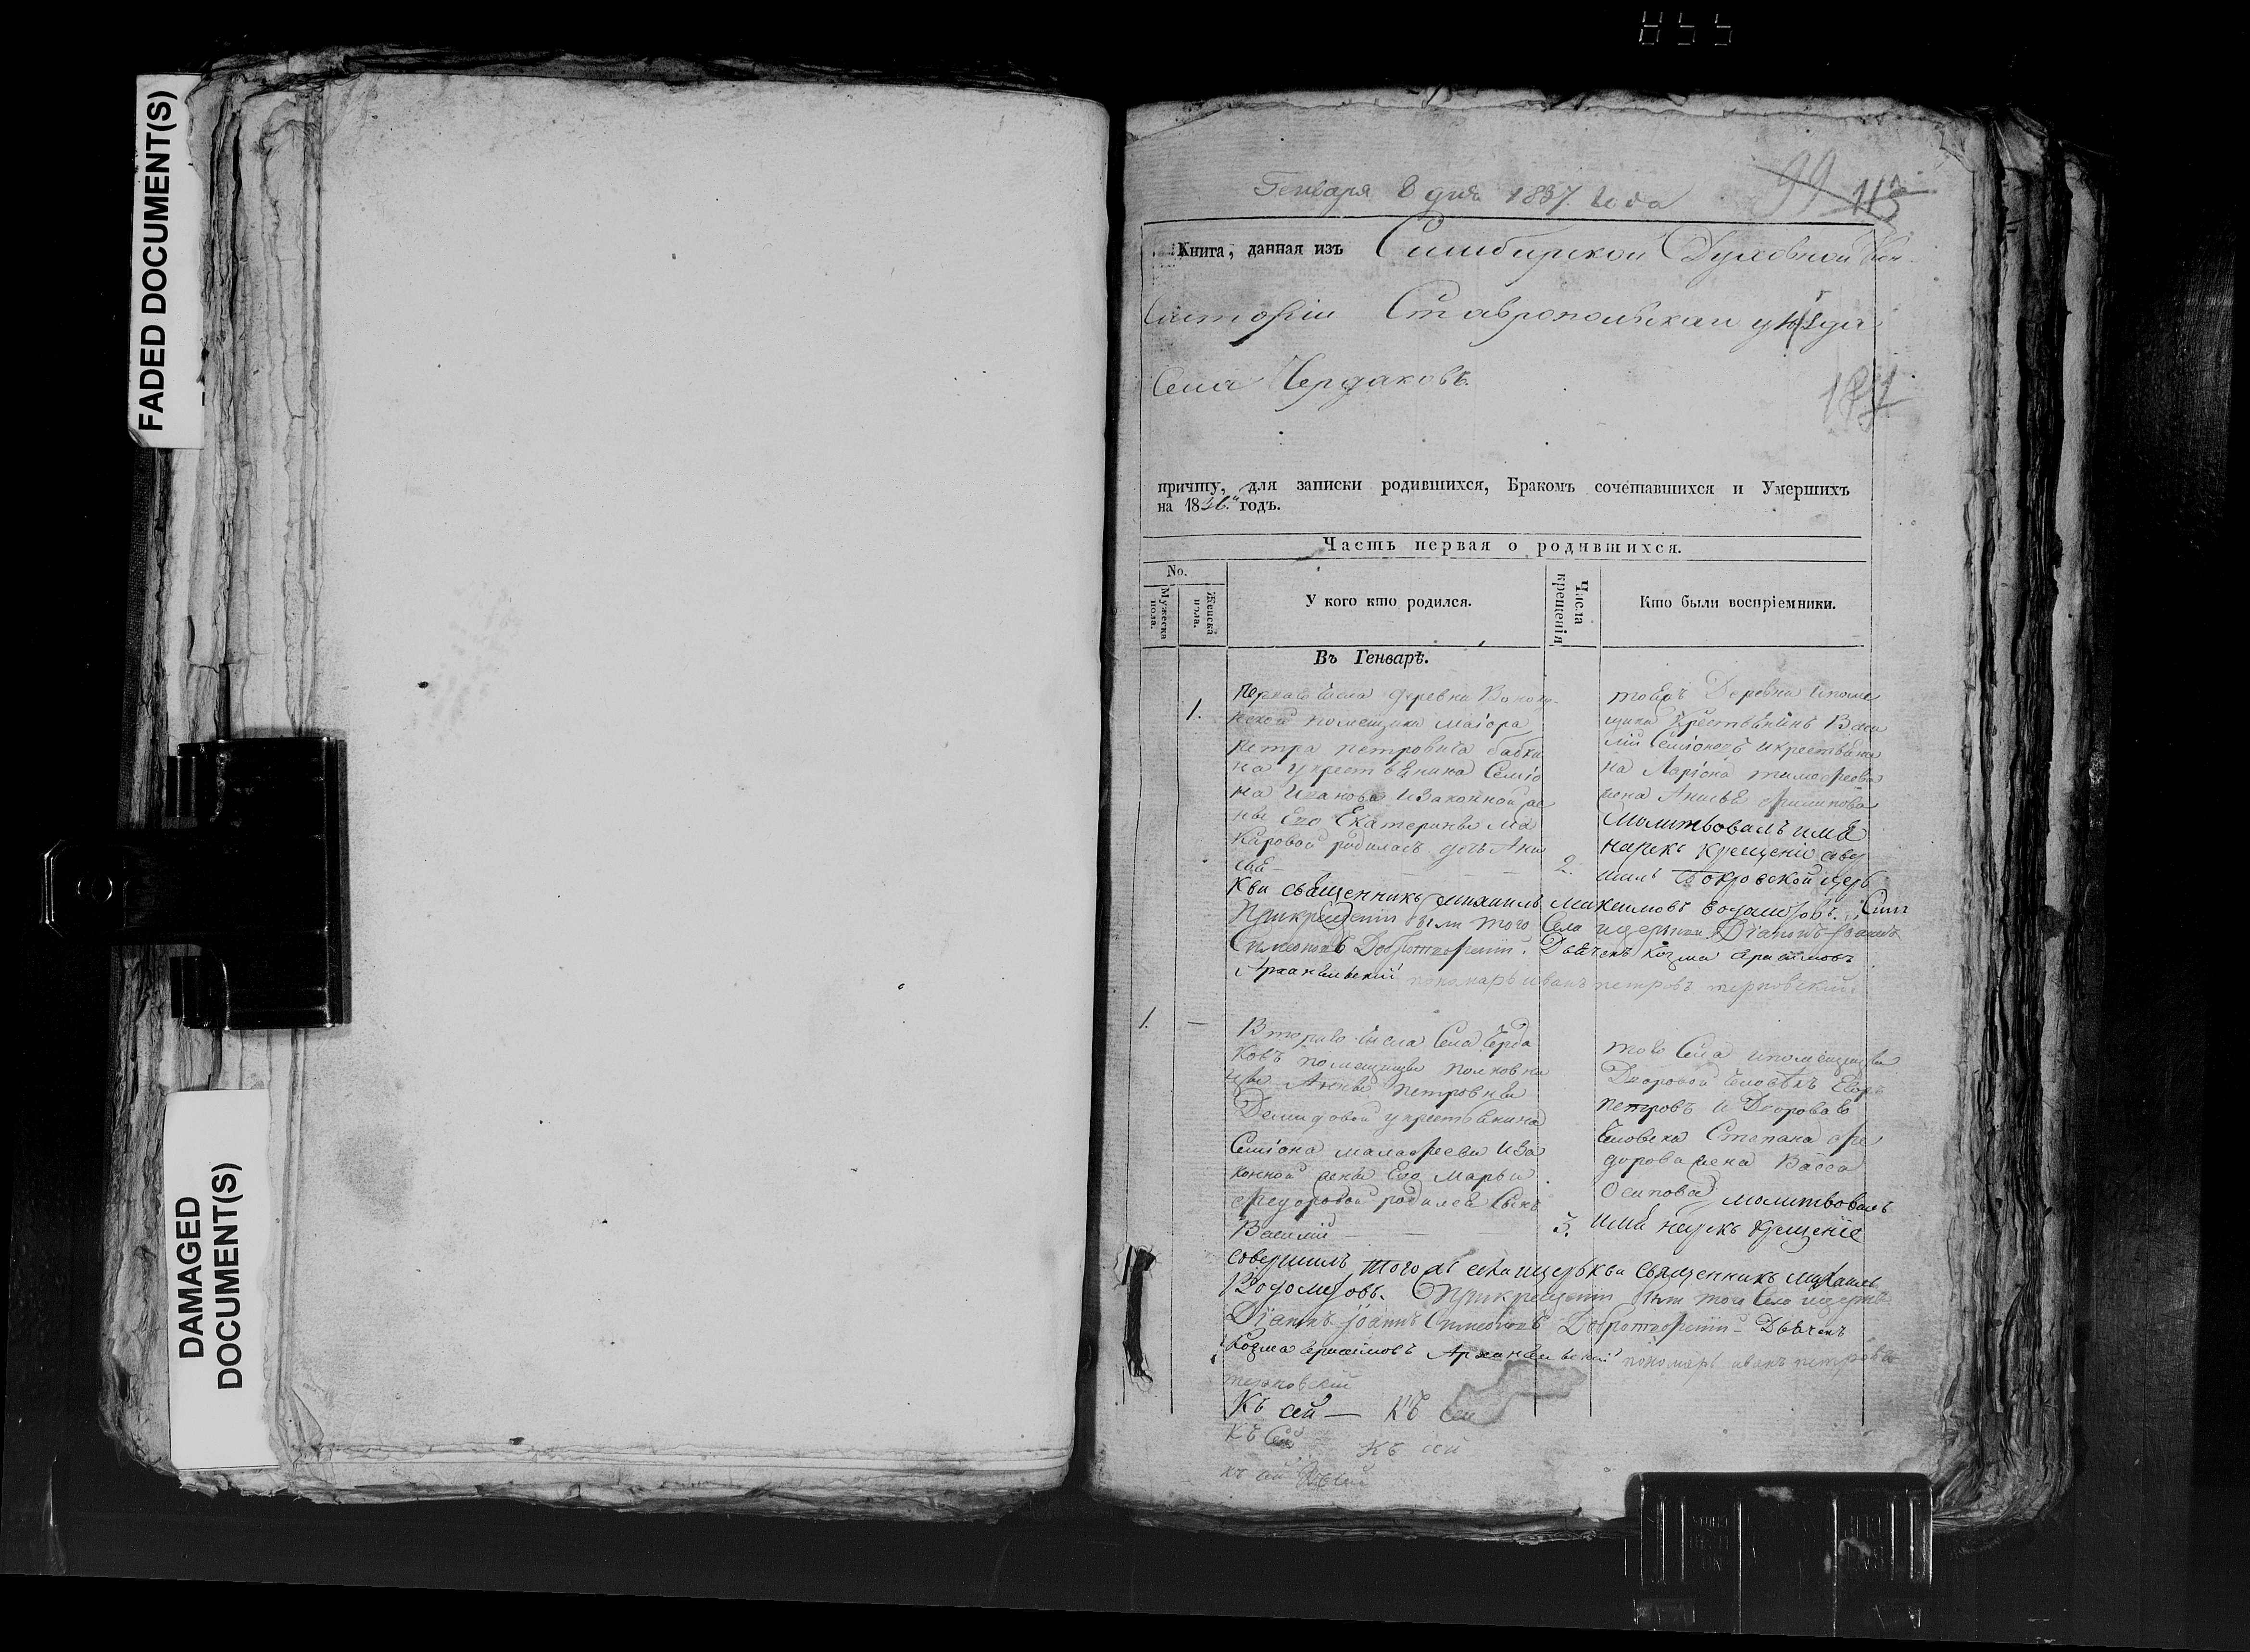 855
FADED DOCUMENT(S)
DAMAGED
DOCUMENT(S)
Генваря 8 дня 1837 года
99 113
Книга, данная изъ Симбирской Духовной Кон
систоріи Ставропольскаи уѣзда
Села Чердаковъ
причту, для записки родившихся, Бракомъ сочетавшихся и Умершихъ
на 1836. годъ.
Часть первая о родившихся.
No.
Мужеска пола.
Женска пола.
У кого кто родился.
Числа крещенія
Кто были воспріемники.
Въ Генварѣ.
1.
Перваго числа деревни
помещика маіора
Петра Петровича бабки
на у крестьянина Семіо
на Иванова и законной же
ны Его Екатерины Ма
каровой родилась дочь Ани
сья
2.
тоеж Деревни и поме
щика крестьянинъ Васи
лій Семіоновъ и крестьяни
на Ларіона тимофеева
жена Анисья филипова
Молитвовалъ имя
нарекъ крещеніе сове
шилъ Покровской цер
кви священникъ михаилъ Максимовъ Водолѣовъ. Сим
При крещеніи были того Села церкви Діаконъ Іоаннъ
Симеоновъ Добротворскій. Дьячекъ Козма
Архангельскій пономарь иванъ петровъ терновскій.
1. —
Втораго числа Села Черда
ковъ помещицы полковни
цы Анны Петровны
Демидовой у крестьянина
Семіона малафеева и за
конной жены Его Марьи
Федоровой родился Сынъ
Василій
3.
того Села и помещицы
Дворовой человѣкъ Егоръ
Петровъ и Двороваго
человека Степана фе
дорова жена Васса
Осипова молитвовалъ
имя нарекъ крещеніе
совершилъ того ж села церькви Священникъ Михаилъ
При крещеніи были того Села церкви
Діаконъ Іоаннъ Симеоновъ Добротворскій Дьячекъ
Козма Архангельскій пономарь иванъ петровъ
терновскій
Къ сей — Къ сей
Къ сей Къ сей
къ сей